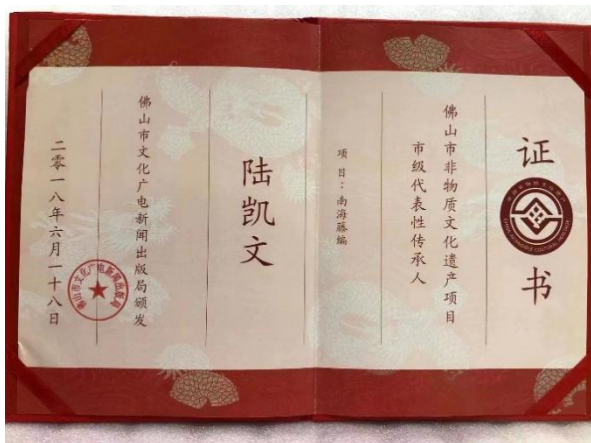 证书
佛山市非物质文化遗产项目
市级代表性传承人
项目：南海藤编
陆凯文
佛山市文化广电新闻出版局颁发
二零一八年六月一十八日
佛山市文化广电新闻出版局